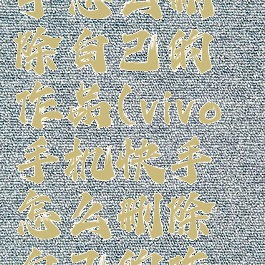 手怎么删
除自己的
作品(vivo
手机快手
怎么删除
自己的作